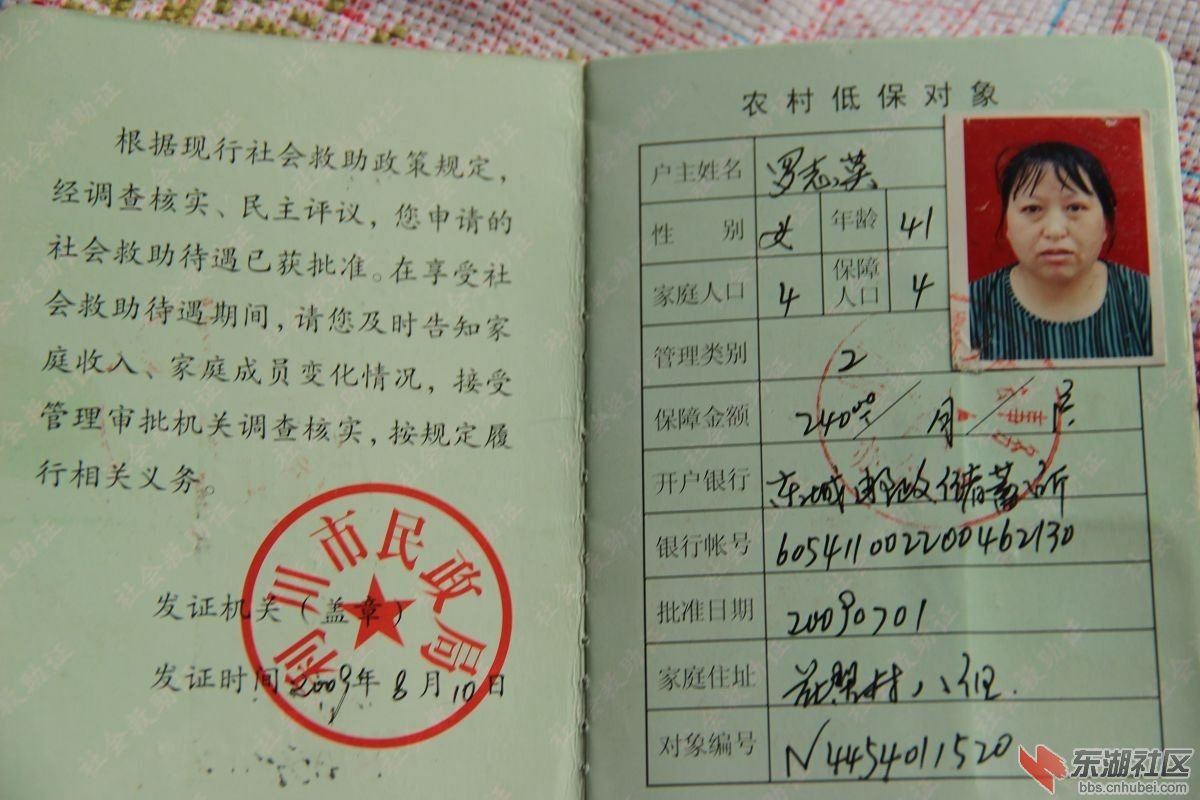 根据现行社会救助政策规定，
经调查核实、民主评议，您申请的
社会救助待遇已获批准。在享受社
会救助待遇期间，请您及时告知家
庭收入、家庭成员变化情况，接受
管理审批机关调查核实，按规定履
行相关义务。
利川市民政局
发证机关（盖章）
发证时间 2009年 8月 10日
农村低保对象
户主姓名 罗志英
性别 女 年龄 41
家庭人口 4 保障人口 4
管理类别 2
保障金额 240元/月/户
开户银行 东城邮政储蓄所
银行帐号 605411002200462130
批准日期 20090701
家庭住址 村八组
对象编号 N4454011520
东湖社区
bbs.cnhubei.com